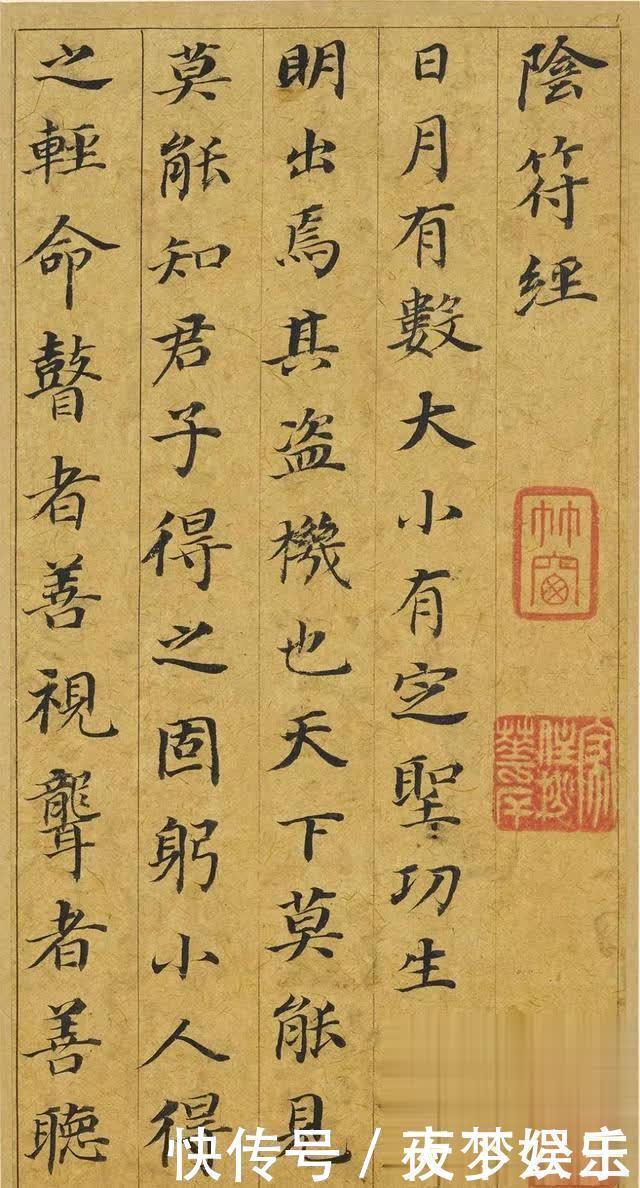 陰符經
日月有數大小有定聖功生
明出焉其盗機也天下莫能見
莫能知君子得之固躬小人得
之輕命瞽者善視聾者善聽
竹窗
快传号 / 夜梦娱乐